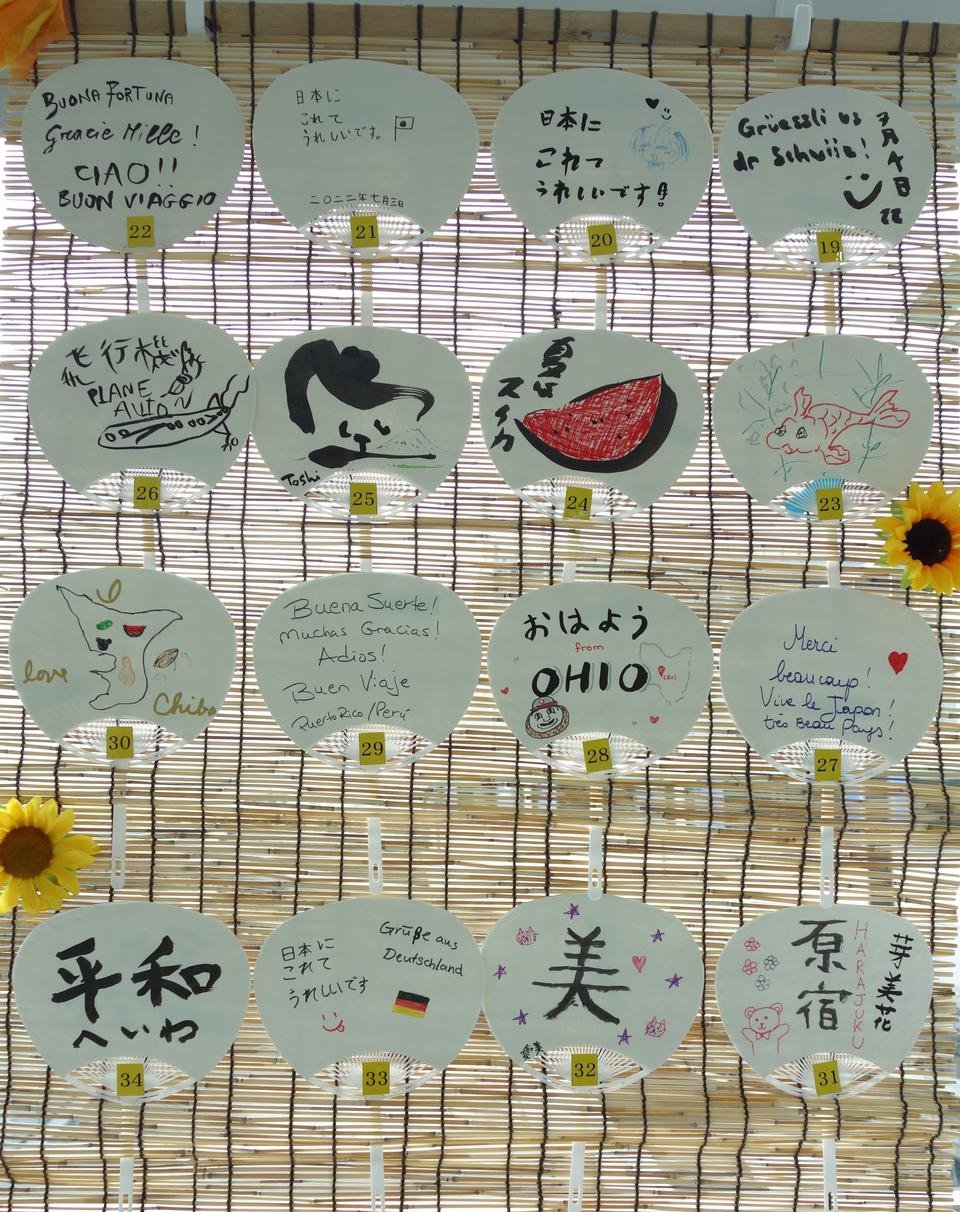 BUONA FORTUNA
Gracie Mille!
CIAO!!
BUON VIAGGIO
22
日本に
これて
うれしいです。
二〇二二年七月三日
21
日本に
これて
うれしいです!!
20
Grüessli us
dr Schwiiz!
7月4日
22
19
飞行機
PLANE
AVION
26
Toshi
25
夏は
スイカ
24
23
love
Chiba
30
Buena Suerte!
Muchas Gracias!
Adios!
Buen Viaje
Puerto Rico/Perú
29
おはよう
from
OHIO
28
Merci
beaucoup!
Vive le Japon!
très Beau Pays!
27
平和
へいわ
34
日本に
これて
うれしいです
Grüße aus
Deutschland
33
美
愛美
32
原宿
HARAJUKU
芽美花
31